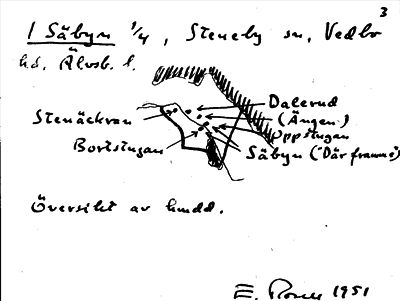 3
1 Säbyn 1/4, Steneby sn, Vedbo
hd. Älvsb. l.
Dalerud
(Ängen)
Stenäckran
Uppstugan
Bortstugan
Säbyn ("Där framme")
Översikt av
E. 1951